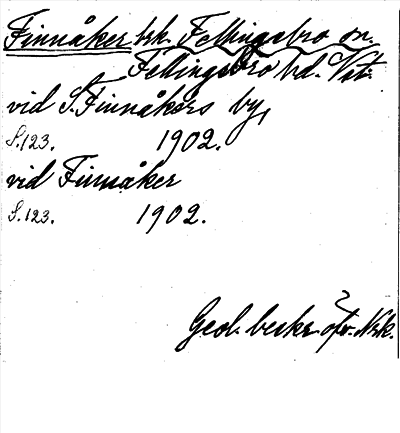 Finnåker brk. Fellingsbro sn.
Fellingsbro hd. Vstm.
vid S. Finnåkers by,
S. 123. 1902.
vid Finnåker
S. 123. 1902.
Geol. beskr. öfv. Nrk.